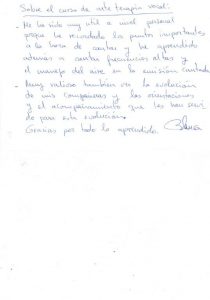 Sobre el curso de arte terapia vocal:
- Me ha sido muy útil a nivel personal
porque he recordado los puntos importantes
a la hora de cantar y he aprendido
además a cantar frecuencias altas y
el manejo del aire en la emisión cantada.
- Muy valioso también ver la evolución
de mis compañeras y las orientaciones
y el acompañamiento que les han servi
do para esta evolución.
Gracias por todo lo aprendido.